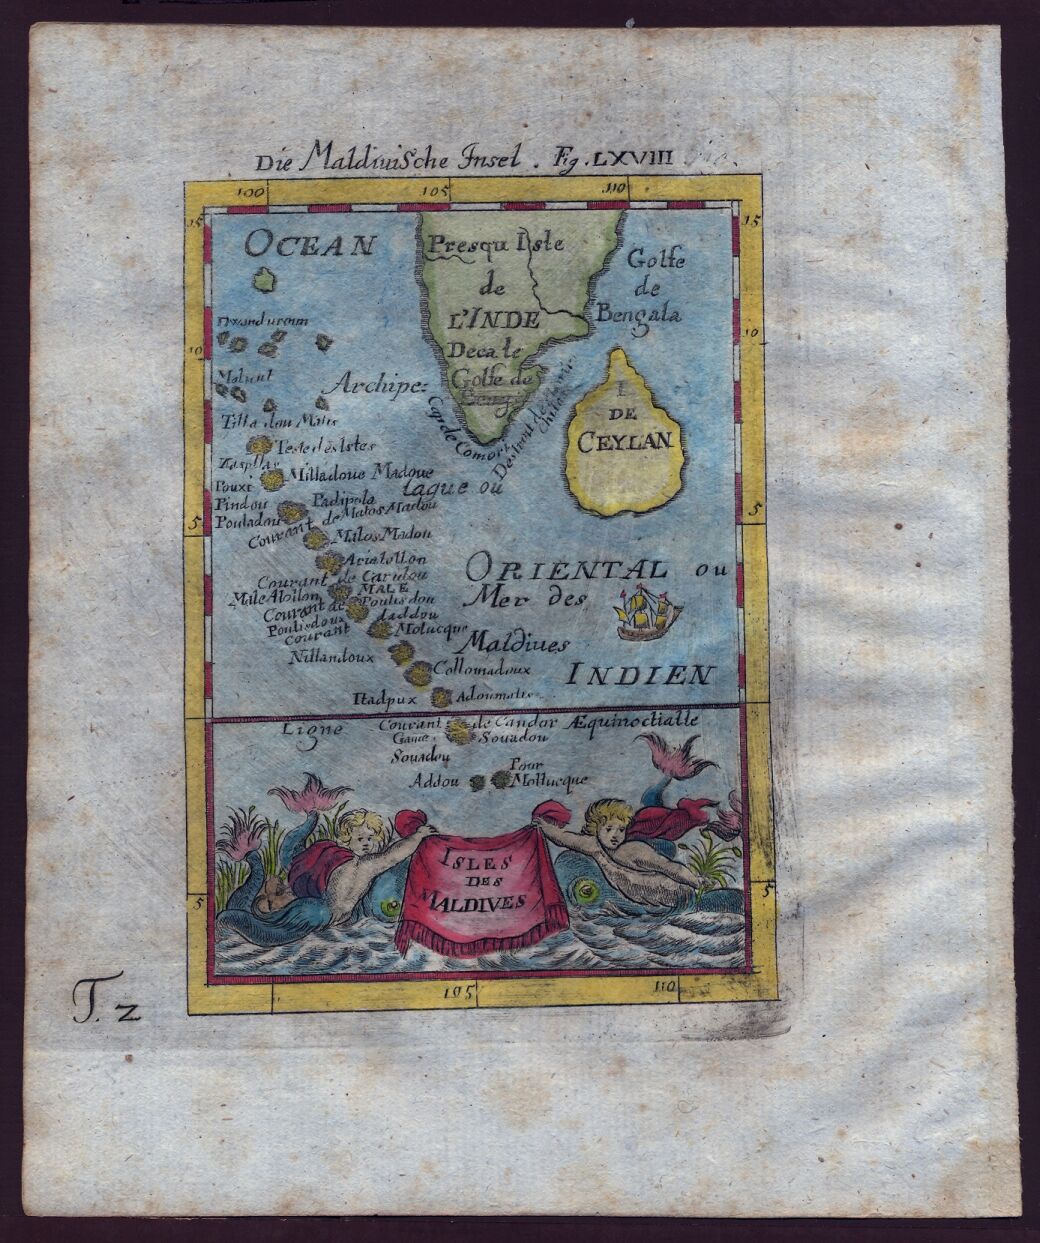 Die Maldivische Insel. Fig. LXVIII
100 105 110
15 15
OCEAN
Presqu Isle
de
L'INDE
Deca le
Golfe de
Golfe
de
Bengala
10 10
Archipe:
Cap de Comori
Destroit de
I
DE
CEYLAN
Tilla dou Matis
Teste des Istes
Milladoue Madoue
Pouxt
lague ou
Pindou Padipola
Pouladou
Courant de Malos Madou
5 5
Malos Madou
Ariatollon
Courant de Caridou
MALE
Male Atollon
Poulisdou
Courant de
Poulisdoux
Courant
Molucque
Nillandoux
Collomadoux
Itadpux
Adoumatis
ORIENTAL ou
Mer des
Maldives
INDIEN
Ligne Æquinoctialle
Courant de Candor
Souadou
Souadou
Addou
Pour
Mollucque
ISLES
DES
MALDIVES
5 5
105 110
T. 2